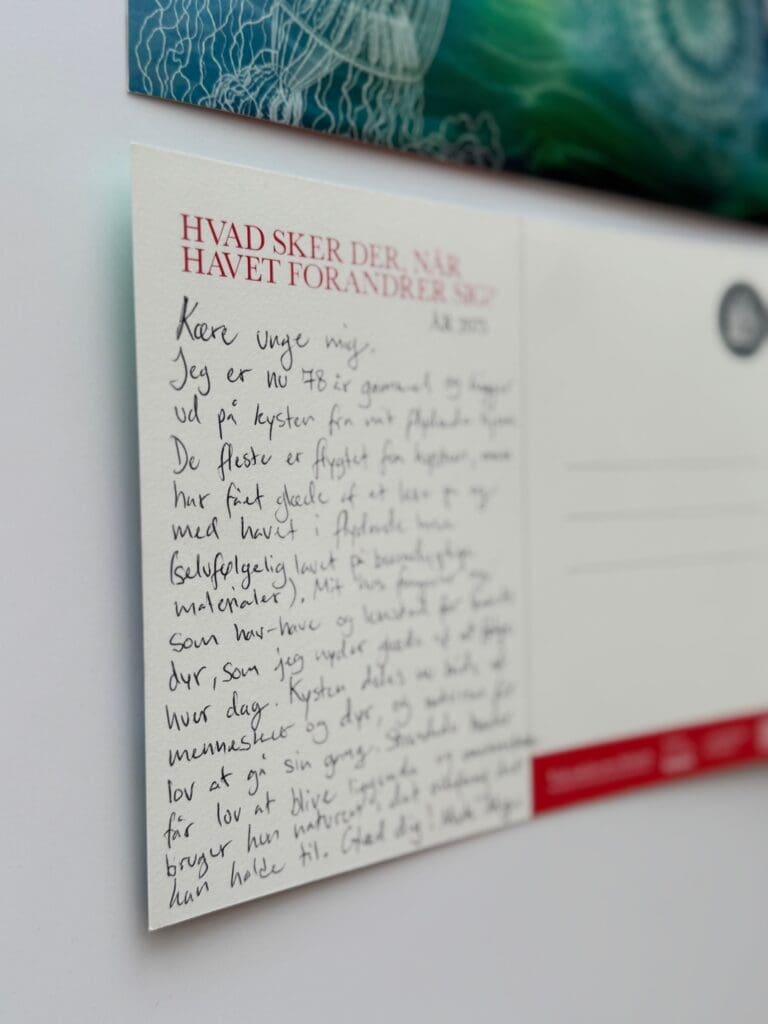 HVAD SKER DER, NÅR
HAVET FORANDRER SIG?
ÅR 2075
Kære unge mig.
Jeg er nu 78 år gammel og kigger
ud på kysten fra mit flydende hjem
De fleste er flygtet fra kysten, men
har fået glæde af at leve på og
med havet i flydende huse
(selvfølgelig lavet på bæredygtige
materialer). Mit hus fungerer
som hav-have og levested for
dyr, som jeg nyder glæde af at følge
hver dag. Kysten deles nu både af
mennesker og dyr, og naturen får
lov at gå sin gang.
får lov at blive liggende og
bruger kun naturen, det
kan holde til. Glæd dig!